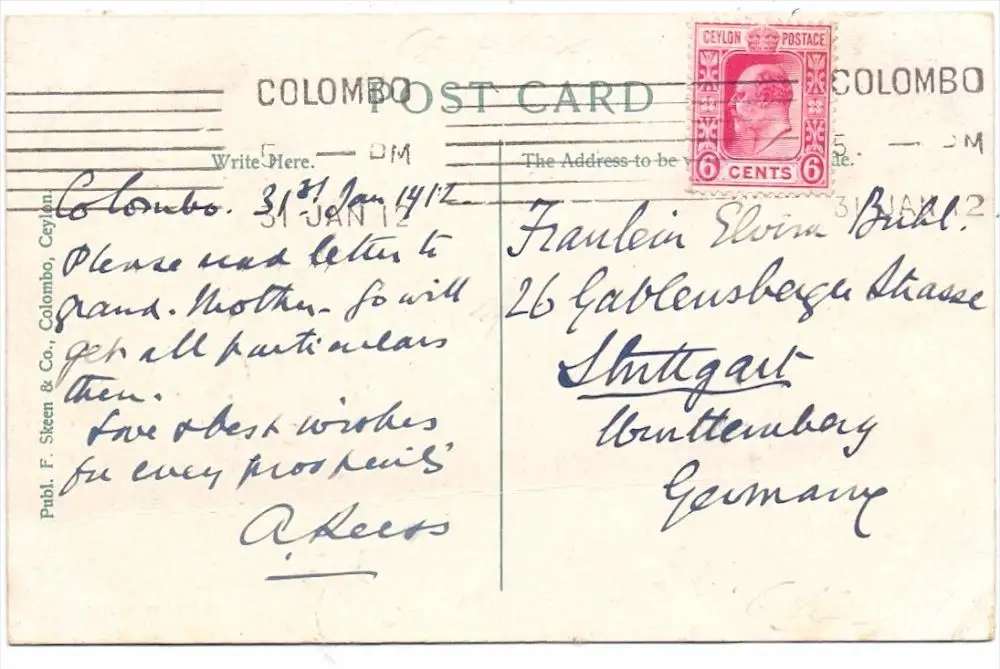 COLOMBO
POST CARD
CEYLON POSTAGE
6 CENTS 6
COLOMBO
5 — PM
5. — PM
Write Here.
The Address to be
31 JAN 12
31 JAN 12
Colombo. 31st Jan 1912.
Please read letter to
grand. Mother.
will
get all particulars
then.
Love & best wishes
for every prosperity
A.
Fraulein Elvira Buhl.
26 Gablensberger Strasse
Stuttgart
Wurttemberg
Germany
Publ. F. Skeen & Co., Colombo, Ceylon.